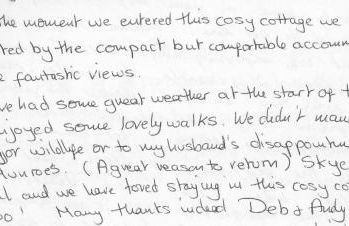 he moment we entered this cosy cottage we
ted by the compact but comfortable accomm
fantastic views.
ve had some great weather at the start of t
njoyed some lovely walks. We didn't man
jor wildlife or to my husband's disappointm
Munroes. (A great reason to return) Skye
l and we have loved staying in this cosy co
oo! Many thanks indeed Deb & Andy